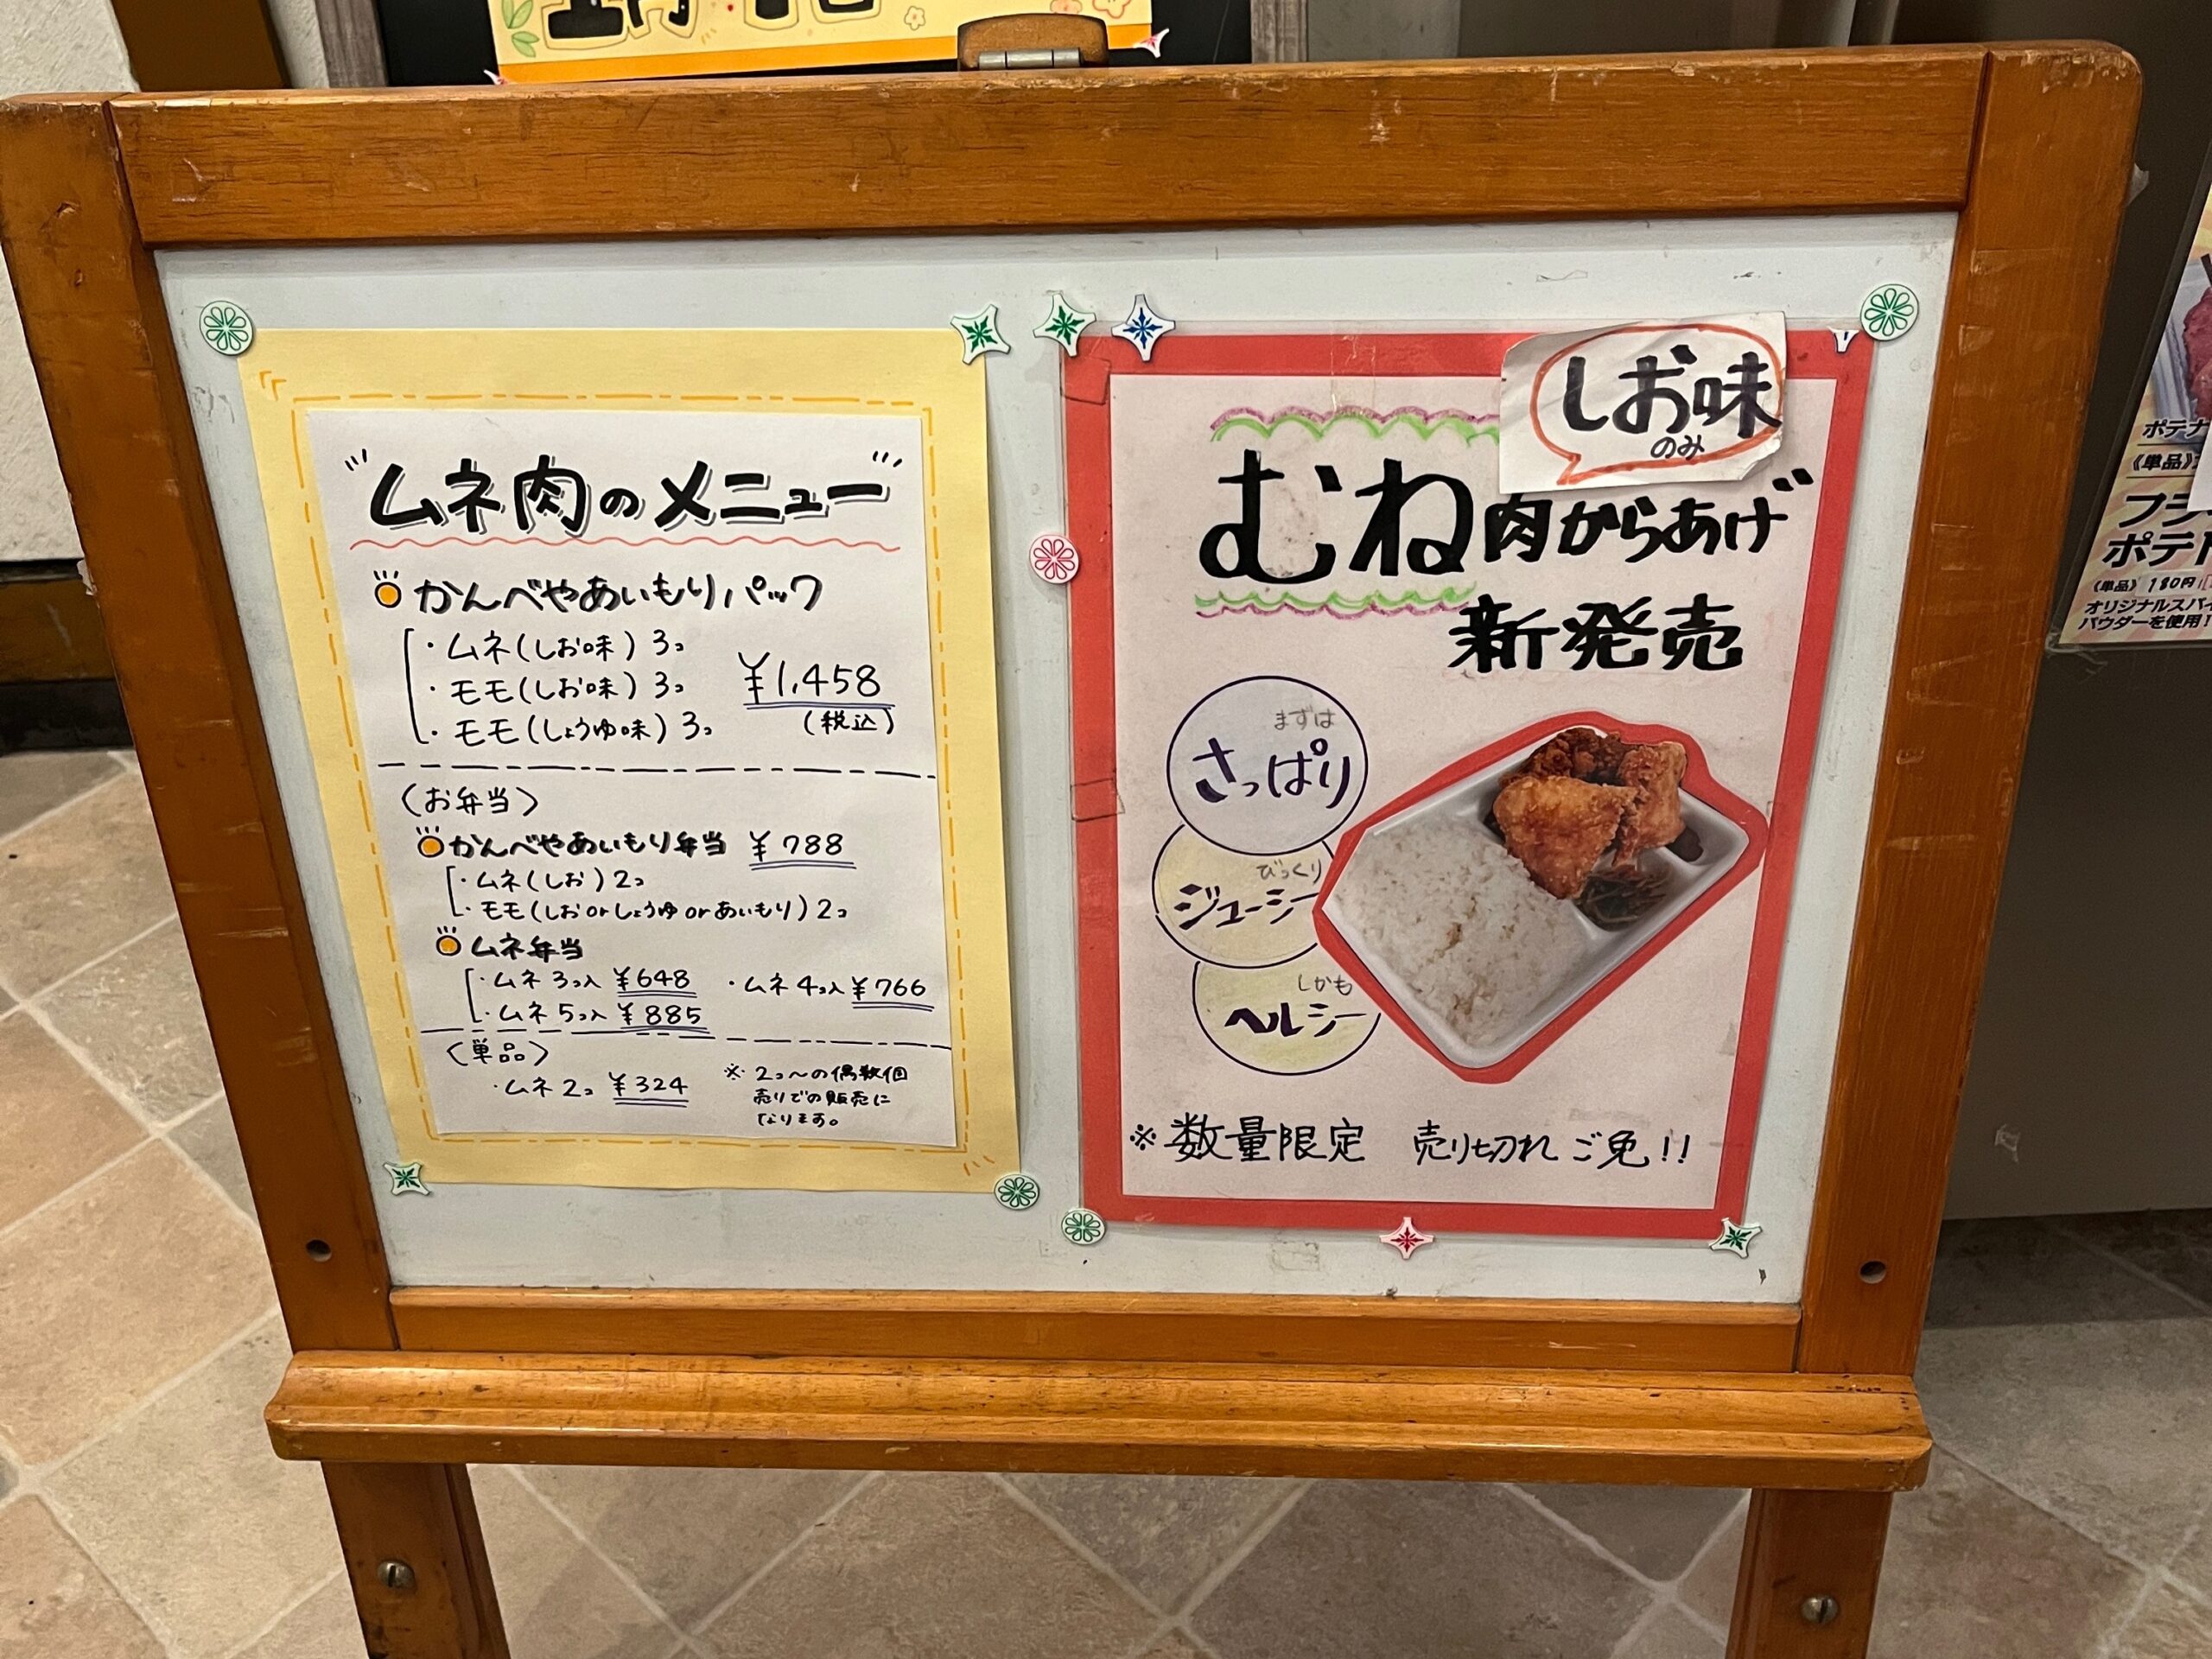 ムネ肉のメニュー
かんべやあいもりパック
・ムネ(しお味) 3コ
・モモ(しお味) 3コ
・モモ(しょうゆ味) 3コ
¥1,458
(税込)
〈お弁当〉
かんべやあいもり弁当 ¥788
・ムネ(しお)2コ
・モモ(しおorしょうゆorあいもり)2コ
ムネ弁当
・ムネ3コ入 ¥648 ・ムネ4コ入 ¥766
・ムネ5コ入 ¥885
〈単品〉
・ムネ2コ ¥324
※2コ～の偶数個
売りでの販売に
なります。
しお味
のみ
むね肉からあげ
新発売
まずは
さっぱり
びっくり
ジューシー
しかも
ヘルシー
※数量限定 売り切れご免!!
ポテナ
《単品》
フラ
ポテト
《単品》180円
オリジナルスパイ
パウダーを使用!